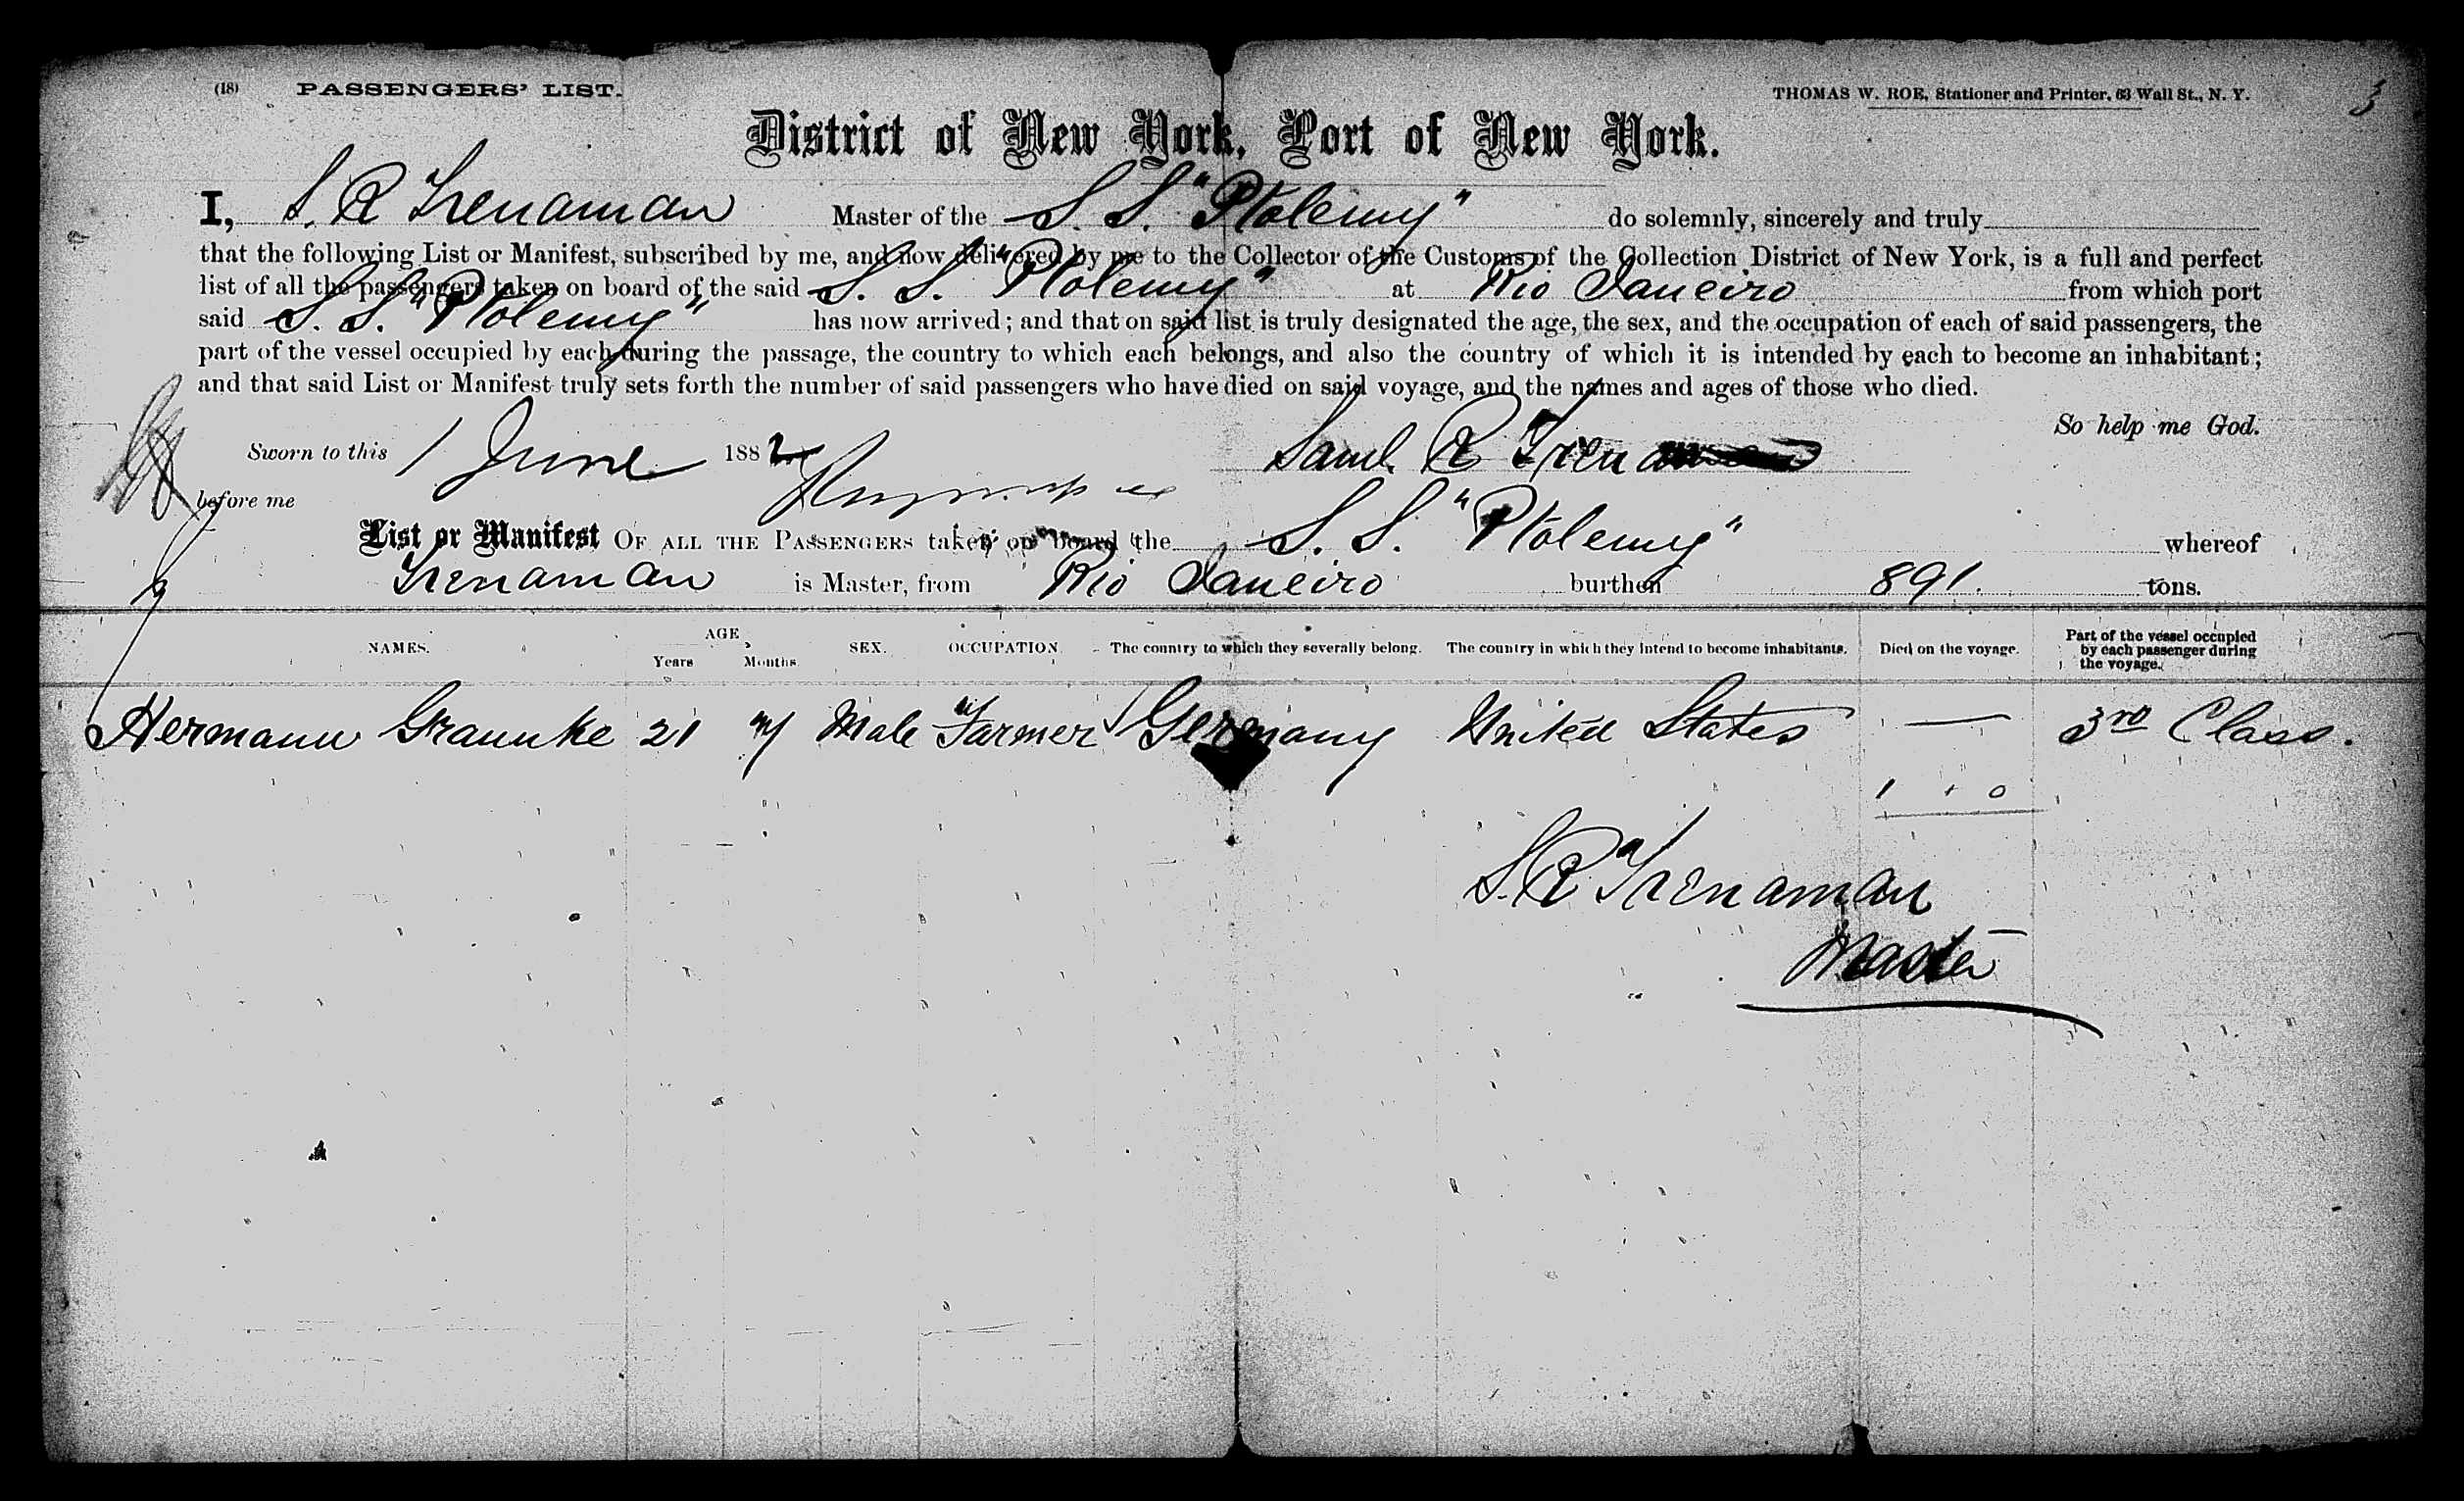 (18) PASSENGERS' LIST. THOMAS W. ROE, Stationer and Printer, 63 Wall St., N. Y. 3
District of New York, Port of New York.
I, S. R Trenaman Master of the S. S. "Ptolemy" do solemnly, sincerely and truly
that the following List or Manifest, subscribed by me, and now delivered by me to the Collector of the Customs of the Collection District of New York, is a full and perfect
list of all the passengers taken on board of the said S. S. "Ptolemy" at Rio Janeiro from which port
said S. S. "Ptolemy" has now arrived; and that on said list is truly designated the age, the sex, and the occupation of each of said passengers, the
part of the vessel occupied by each during the passage, the country to which each belongs, and also the country of which it is intended by each to become an inhabitant;
and that said List or Manifest truly sets forth the number of said passengers who have died on said voyage, and the names and ages of those who died.
So help me God.
Sworn to this 1 June 1882 Saml. R Trenaman
before me
List or Manifest OF ALL THE PASSENGERS taken on board the S. S. "Ptolemy" whereof
Trenaman is Master, from Rio Janeiro burthen 891. tons.
NAMES. AGE Years Months SEX. OCCUPATION The country to which they severally belong. The country in which they intend to become inhabitants. Died on the voyage. Part of the vessel occupied by each passenger during the voyage.
Hermann Graunke 21 Male Farmer Germany United States — 3rd Class.
1 + 0
S. R Trenaman
Master